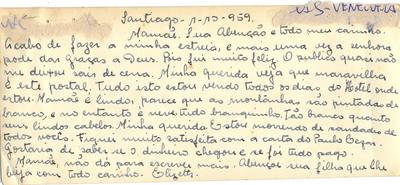 Santiago - 1-10-959.
Mamãe. Sua Abenção e todo meu carinho.
Acabo de fazer a minha estreia, e mais uma vez a senhora
pode dar graças a Deus. Pois fui muito feliz. O publico quasi não
me deixou sair de cena. Minha querida veja que maravilha
é este postal. Tudo isto estou vendo todos os dias, do Hotel onde
estou. Mamãe é lindo, parece que as montanhas são pintadas de
branco, e no entanto é neve, tudo branquinho. Tão branco quanto
seus lindos cabelos. Minha querida Estou morrendo de saudades de
todos vocês. Fiquei muito satisfeita com a carta do Paulo Cezar.
Gostaria de saber se o dinheiro chegou e se foi tudo pago.
Mamãe, não dá para escrever mais. Abençoe sua filha que lhe
beija com todo carinho. Elizeth.